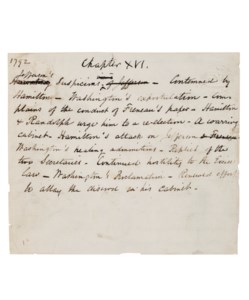 1792
Chapter XVI.
Jefferson's
Suspicions of Jefferson — Contemned by
Hamilton — Washington's expostulation — Com-
plains of the conduct of Freneau's paper — Hamilton
& Randolph urge him to a reelection — A warring
cabinet — Hamilton's attack on Jefferson & Freneau
Washington's healing admonitions — Replies of the
two Secretaries — Continued hostility to the Excise
Law — Washington's Proclamation — Renewed effort
to allay the discord in his cabinet.